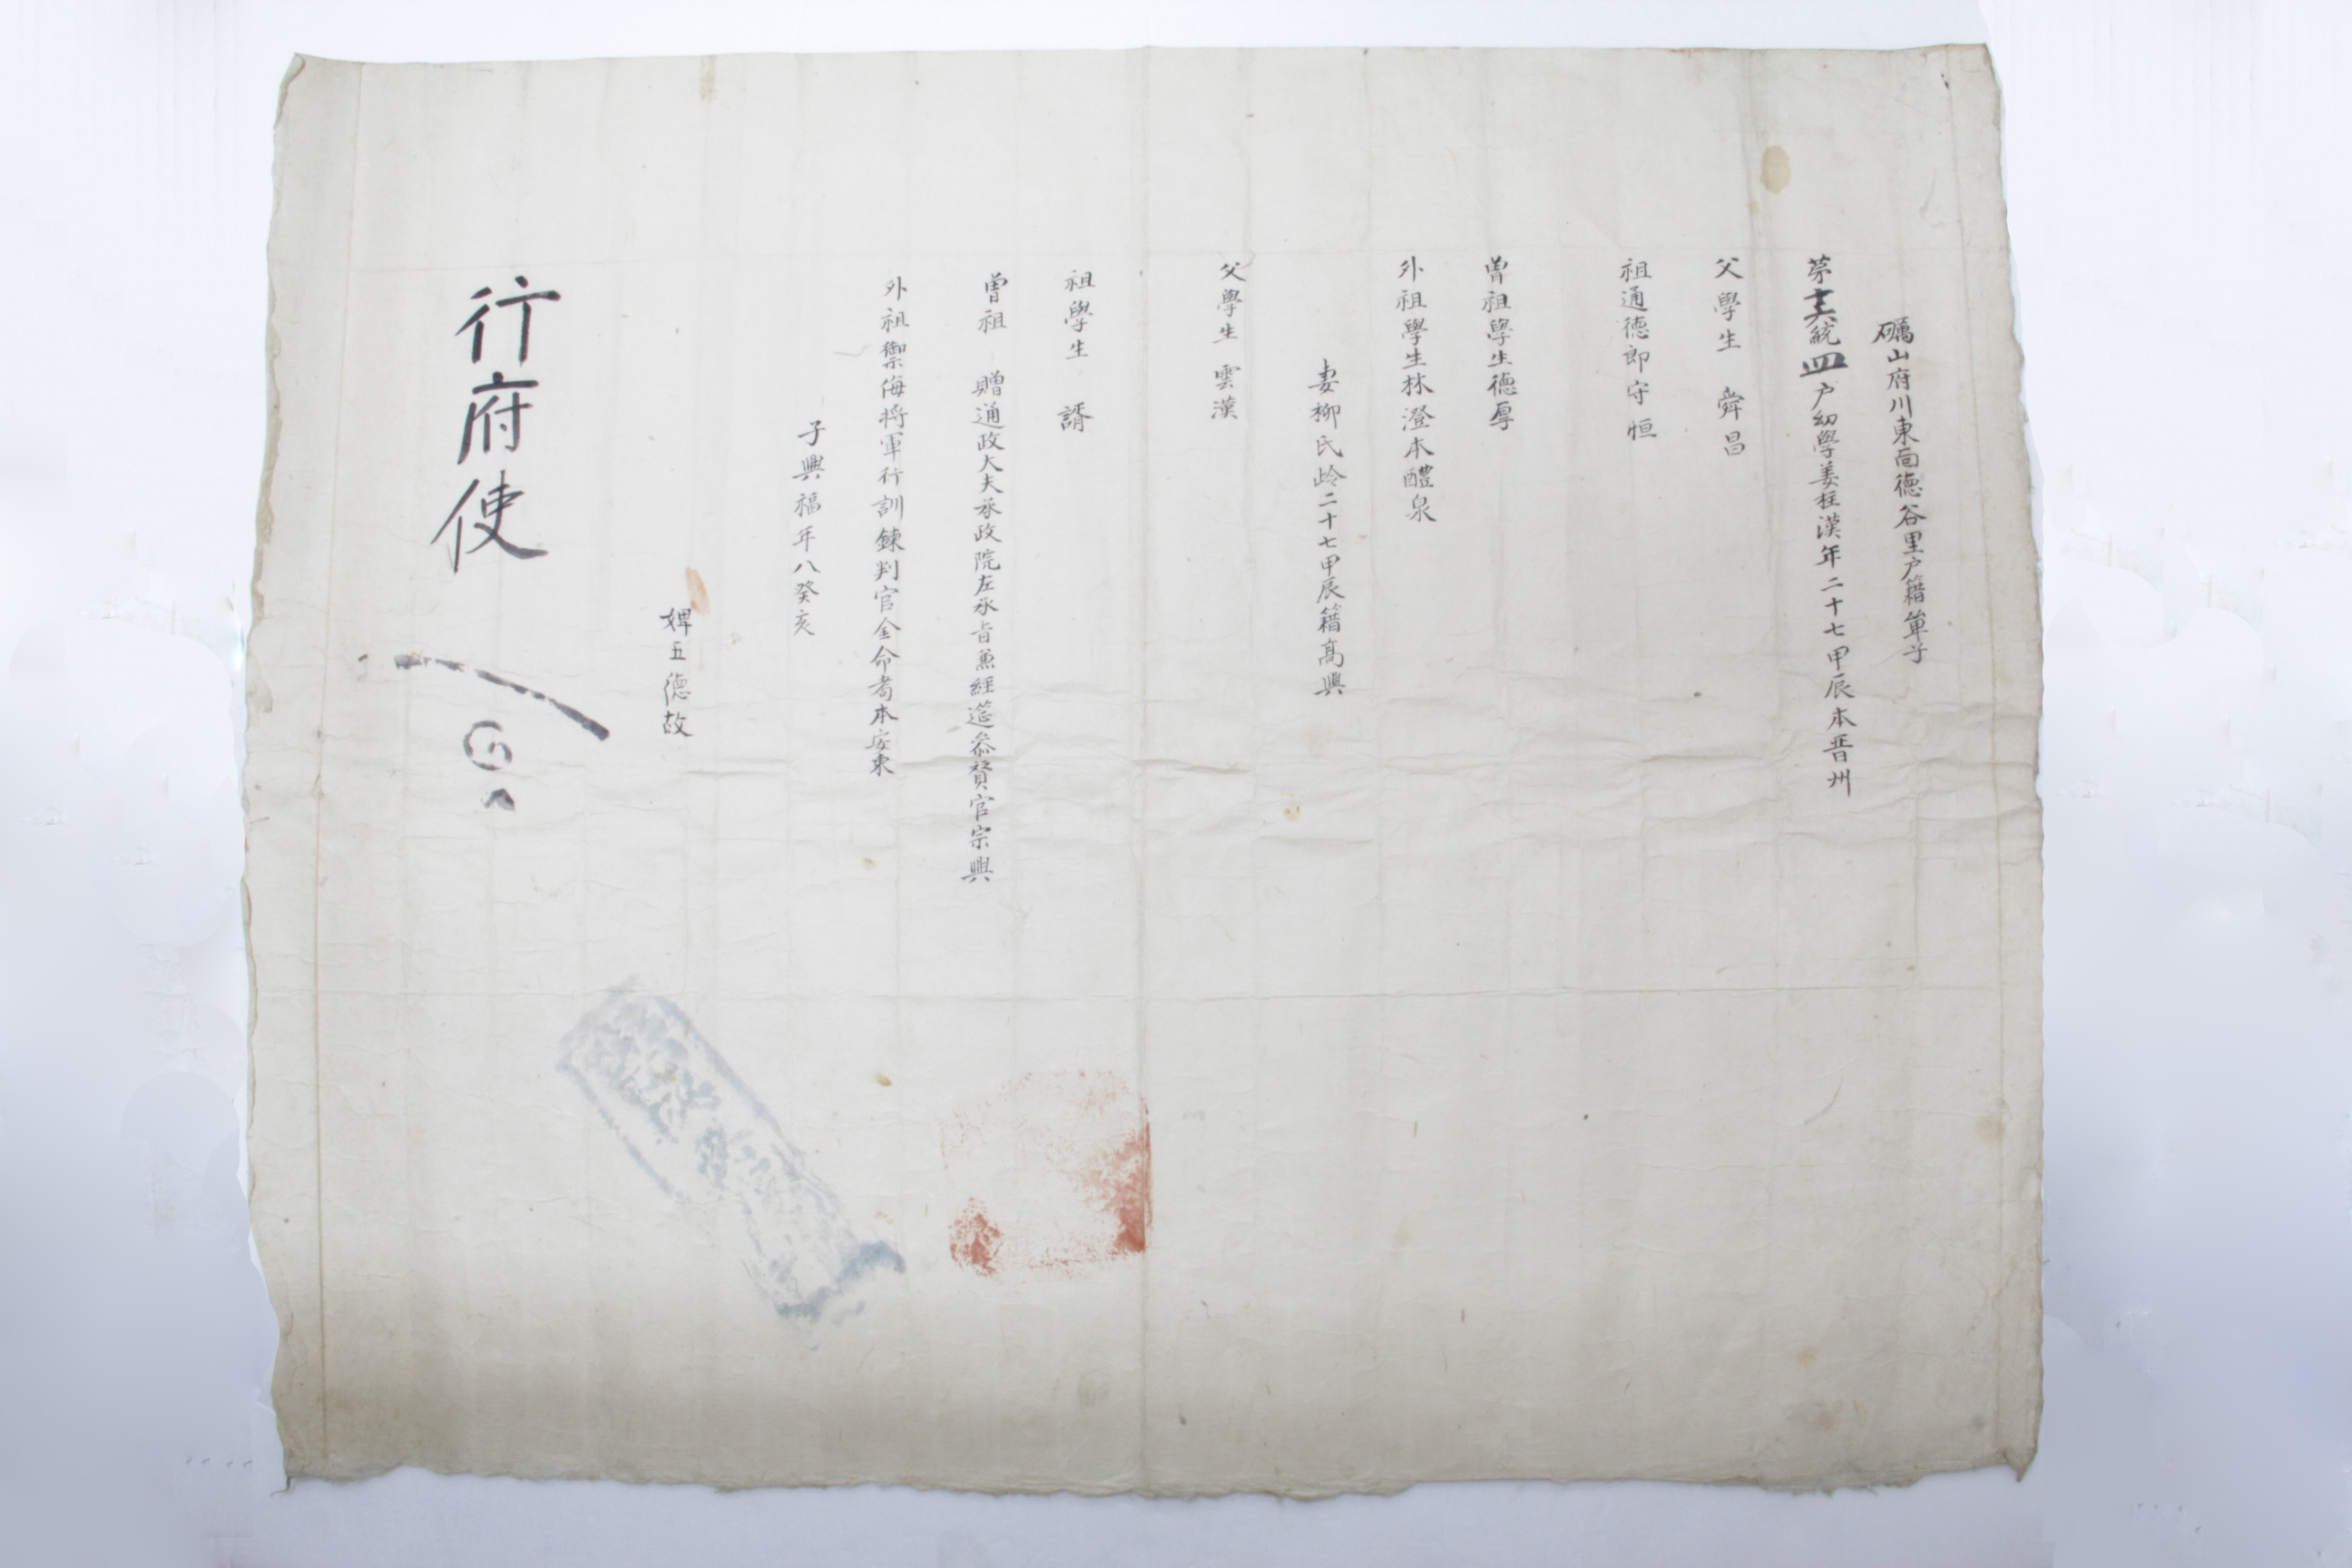 礪山府川東面德谷里户籍單子
第十六統四户幼學姜柱漢年二十七甲辰本晋州
父學生 舜昌
祖通德郎守恒
曾祖學生德厚
外祖學生林澄本醴泉
妻柳氏齡二十七甲辰籍高興
父學生 雲漢
祖學生 諝
曾祖 贈通政大夫承政院左承旨兼經筵參贊官宗興
外祖禦侮將軍行訓鍊判官金命耇本安東
子興福年八癸亥
婢五德故
行府使